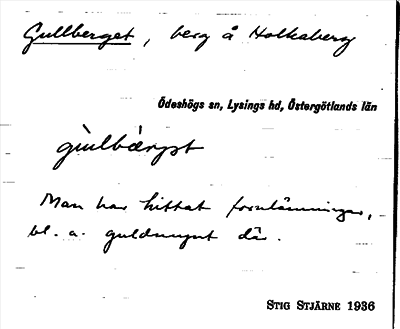 Gullberget, berg å Holkaberg
Ödeshögs sn, Lysings hd, Östergötlands län
gùlbærjət
Man har hittat fornlämningar,
bl. a. guldmynt där.
STIG STJÄRNE 1936